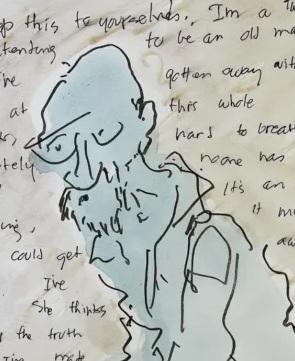 this to yourselves.. I'm a
to be an old ma
I've gotten away with
at this whole
hard to breath
noone has
It's an
It m
could get
I've
She thinks
the truth
I've made